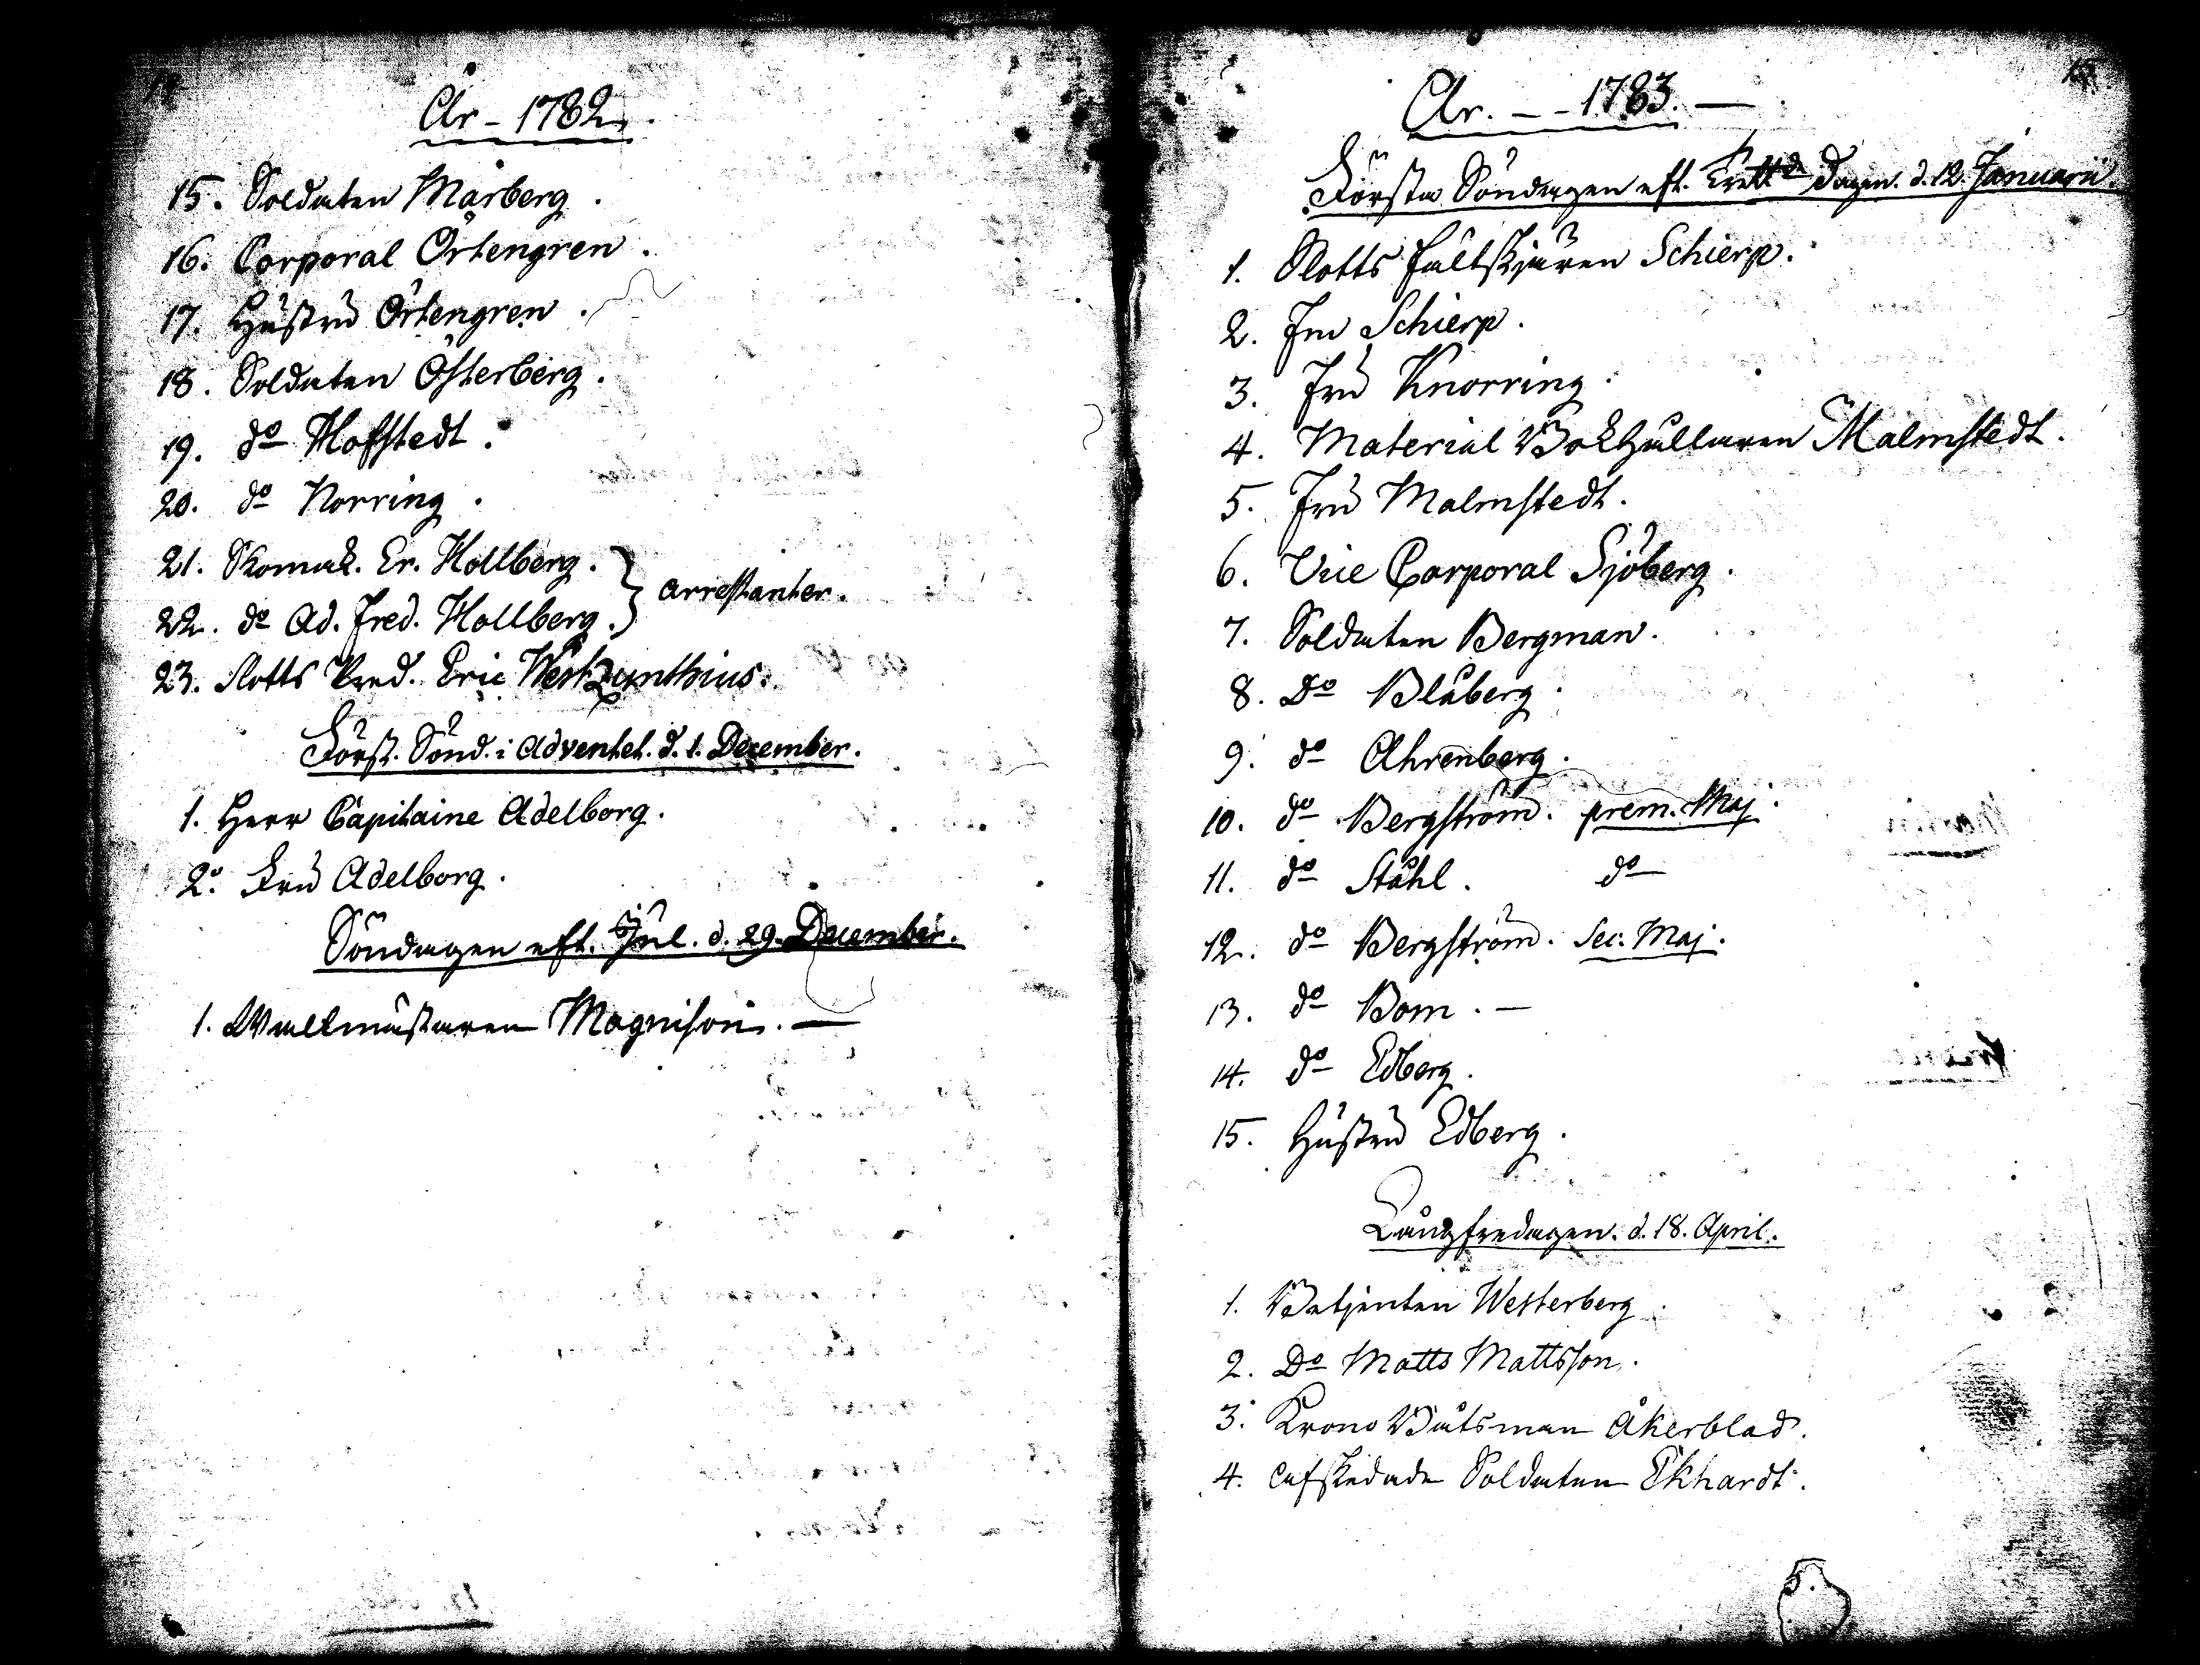 14
År - 1782.
15. Soldaten Mårberg.
16. Corporal Örtengren.
17. Hustru Örtengren.
18. Soldaten Österberg.
19. do Hofstedt.
20. do Norring.
21. Skomak. Er. Hollberg. } arrestanter.
22. do Ad. Fred. Hollberg.
23. Slotts Pred. Eric Westzynthius.
Först. Sönd. i Adventet. d. 1. December.
1. Herr Capitaine Adelborg.
2. Fru Adelborg.
Söndagen eft. Jul. d. 29. December.
1. Wallmästaren Magnison. —
15
År. - - 1783. —
Första Söndagen eft. Trett.de Dagen. d. 12. Januarii.
1. Slotts Fältskjären Schierp.
2. Fru Schierp.
3. Fru Knorring.
4. Material Bokhållaren Malmstedt.
5. Fru Malmstedt.
6. Vice Corporal Sjöberg.
7. Soldaten Bergman.
8. Do Blåberg.
9. do Ahrenberg.
10. do Bergström. prem. Maj.
11. do Ståhl. do
12. do Bergström. Sec. Maj.
13. do Bom. —
14. do Edberg.
15. Hustru Edberg.
Långfredagen. d. 18. April.
1. Betjenten Westerberg.
2. Do Matts Mattsson.
3. Krono Båtsman Åkerblad.
4. Afskedade Soldaten Ekhardt.
5.